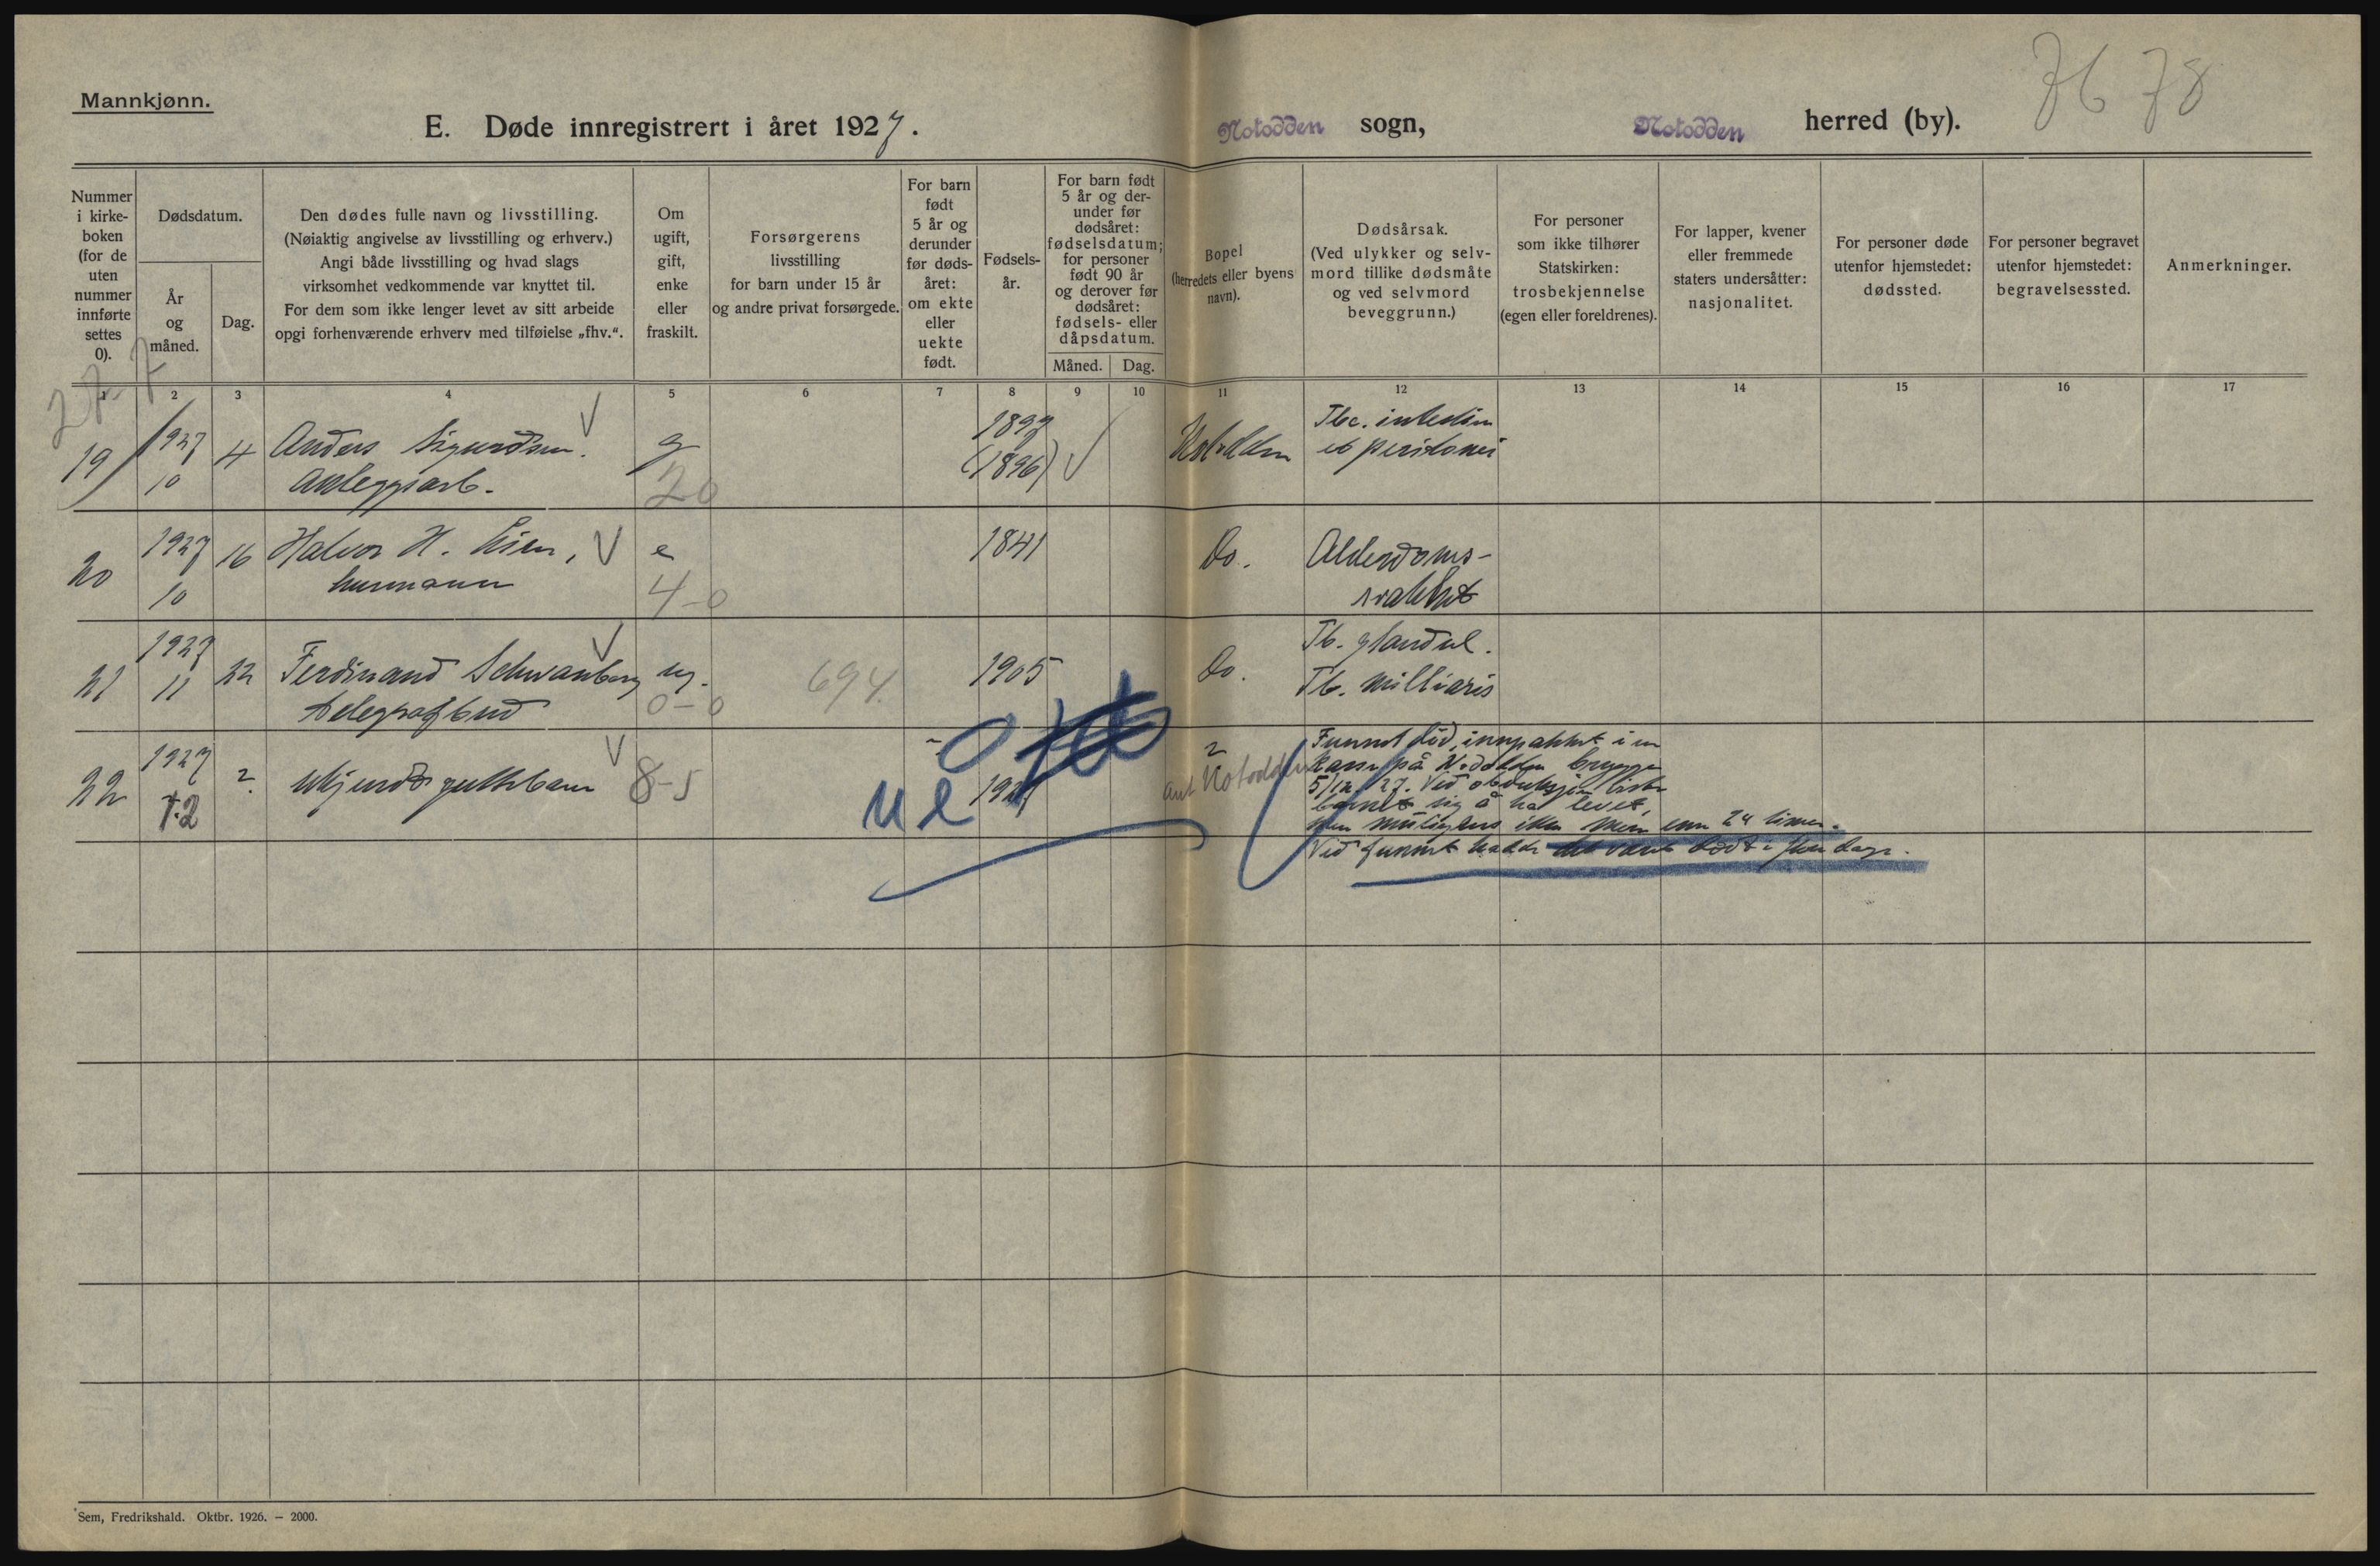 Mannkjønn.
E. Døde innregistrert i året 1927.
Notodden sogn,
Notodden herred (by).
76 78
Nummer
i kirke-
boken
(for de
uten
nummer
innførte
settes
0).
Dødsdatum.
År
og
måned.
Dag.
Den dødes fulle navn og livsstilling.
(Nøiaktig angivelse av livsstilling og erhverv.)
Angi både livsstilling og hvad slags
virksomhet vedkommende var knyttet til.
For dem som ikke lenger levet av sitt arbeide
opgi forhenværende erhverv med tilføielse „fhv.“.
Om
ugift,
gift,
enke
eller
fraskilt.
Forsørgerens
livsstilling
for barn under 15 år
og andre privat forsørgede.
For barn
født
5 år og
derunder
før døds-
året:
om ekte
eller
uekte
født.
Fødsels-
år.
For barn født
5 år og der-
under før
dødsåret:
fødselsdatum;
for personer
født 90 år
og derover før
dødsåret:
fødsels- eller
dåpsdatum.
Måned. Dag.
Bopel
(herredets eller byens
navn).
Dødsårsak.
(Ved ulykker og selv-
mord tillike dødsmåte
og ved selvmord
beveggrunn.)
For personer
som ikke tilhører
Statskirken:
trosbekjennelse
(egen eller foreldrenes).
For lapper, kvener
eller fremmede
staters undersåtter:
nasjonalitet.
For personer døde
utenfor hjemstedet:
dødssted.
For personer begravet
utenfor hjemstedet:
begravelsessted.
Anmerkninger.
1 2 3 4 5 6 7 8 9 10 11 12 13 14 15 16 17
19 1927 10 4 Anders Sigurdsen.
Anleggsarb.
g
20
1897
(1896)
Notodden
Tbc. intestin
et peritonei
20 1927 10 16 Halvor H. Lien,
husmann
e
4-0
1841
Do.
Alderdoms-
svakhet
21 1927 11 22 Ferdinand Schwanberg
telegrafbud
ug.
0-0
694.
1905
Do.
Tb. glandul.
Tb. milliaris
22 1927 12 ? Ukjendt guttebarn
8-5
ue
1927
?
ant Notodden
Funnet død, innpakket i en
kasse på Notodden brygge
5/12 27. Ved obduksjon viste
barnet sig å ha levet,
men muligens ikke mer enn 24 timer.
Ved funnet hadde det vært dødt i flere dage.
Sem, Fredrikshald. Oktbr. 1926. — 2000.